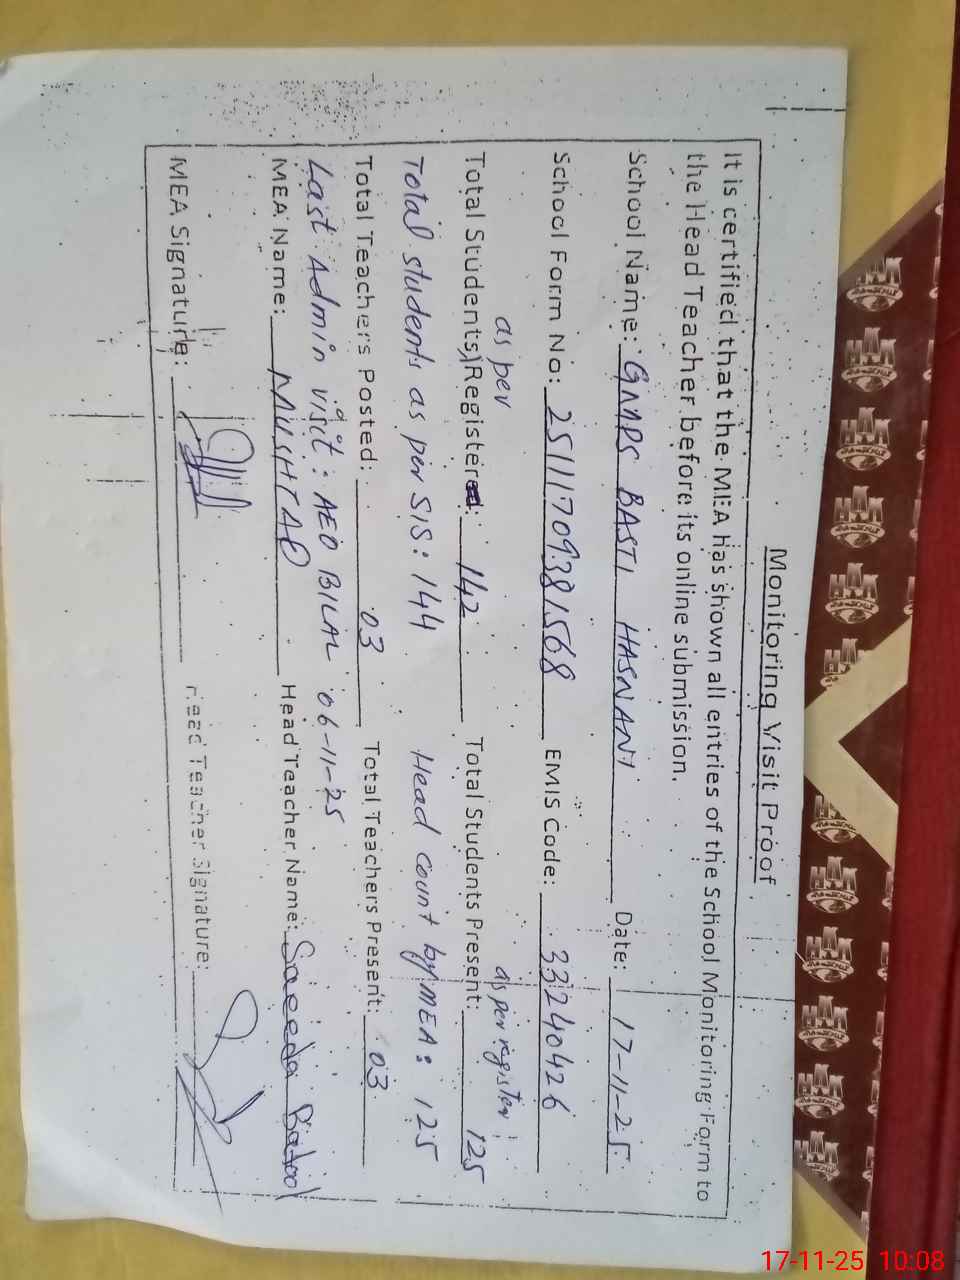 Monitoring Visit Proof
It is certified that the MEA has shown all entries of the School Monitoring Form to
the Head Teacher before its online submission.
School Name: GMPS BASTI HASNANI Date: 17-11-25
School Form No: 25111709381568 EMIS Code: 33240426
as per as per register
Total Students Registered: 142 Total Students Present: 125
Total students as per SIS: 144 Head count by MEA: 125
Total Teachers Posted: 03 Total Teachers Present: 03
Last Admin visit: AEO BILAL 06-11-25
MEA Name: MUSHTAQ Head Teacher Name: Saeeda Batool
MEA Signature: Head Teacher Signature:
17-11-25 10:08